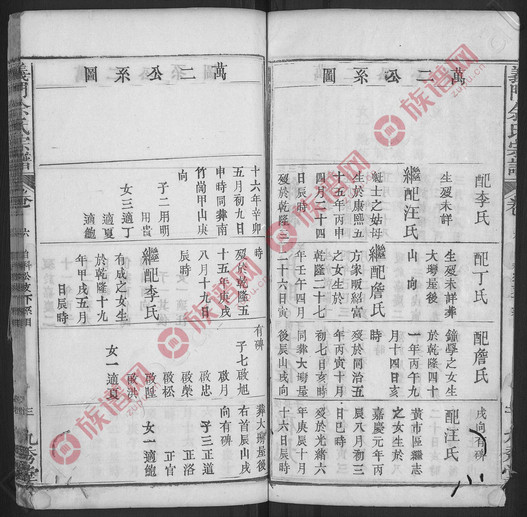 萬二公系圖
配李氏
生歿未詳
繼配汪氏
蜓士之姑母
生於康熙五
十五年丙申
四月二十四
日辰時
歿於乾隆三
十六年辛卯
五月初九日
申時同葬南
竹崗甲山庚
向
子二用明
用貴
女三適丁
適夏
適鮑
配丁氏
生歿未詳葬
大塆屋後
山向
繼配詹氏
方家畈紹富
之女生於
乾隆二十七
年壬午四月
二十六日寅
時
歿於乾隆五
十五年庚戌
八月十九日
辰時
繼配李氏
有成之女生
於乾隆十九
年甲戌五月
日辰時
配詹氏
鐘學之女生
於乾隆四十
一年丙午九
月十四日亥
時
歿於同治五
年丙寅十月
初七日亥時
同葬大塆屋
後辰山戌向
有碑
子七啟旭
啟月
啟忠
啟榮
啟松
啟陞
啟洪
女一適夏
戌向有碑
配汪氏
黃市區繼志
之女生於
嘉慶元年丙
辰八月初三
日巳時
歿於光緒六
年庚辰十月
十六日辰時
葬大塆屋後
右首辰山戌
向有碑
子三正道
正洛
正官
女一適鮑
萬二公系圖
義門余氏宗譜
族谱网
zupu.cn